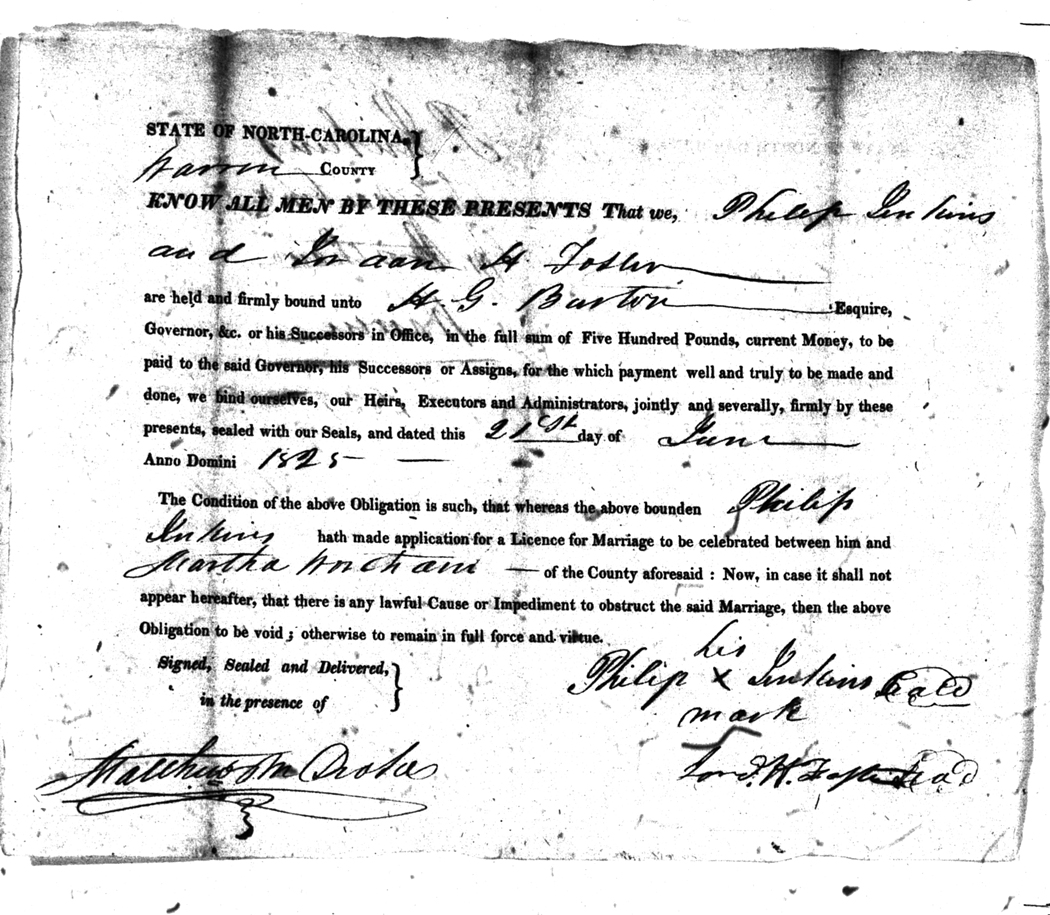 STATE OF NORTH-CAROLINA,
Warren COUNTY
KNOW ALL MEN BY THESE PRESENTS That we, Philip Jenkins
and H Foster
are held and firmly bound unto H. G. Burton Esquire,
Governor, &c. or his Successors in Office, in the full sum of Five Hundred Pounds, current Money, to be
paid to the said Governor, his Successors or Assigns, for the which payment well and truly to be made and
done, we bind ourselves, our Heirs, Executors and Administrators, jointly and severally, firmly by these
presents, sealed with our Seals, and dated this 21st day of June
Anno Domini 1825
The Condition of the above Obligation is such, that whereas the above bounden Philip
Jenkins hath made application for a Licence for Marriage to be celebrated between him and
Martha Wortham — of the County aforesaid : Now, in case it shall not
appear hereafter, that there is any lawful Cause or Impediment to obstruct the said Marriage, then the above
Obligation to be void ; otherwise to remain in full force and virtue.
Signed, Sealed and Delivered,
in the presence of
his
Philip x Jenkins Seal
mark
Matthew M Drake
H. Foster Seal